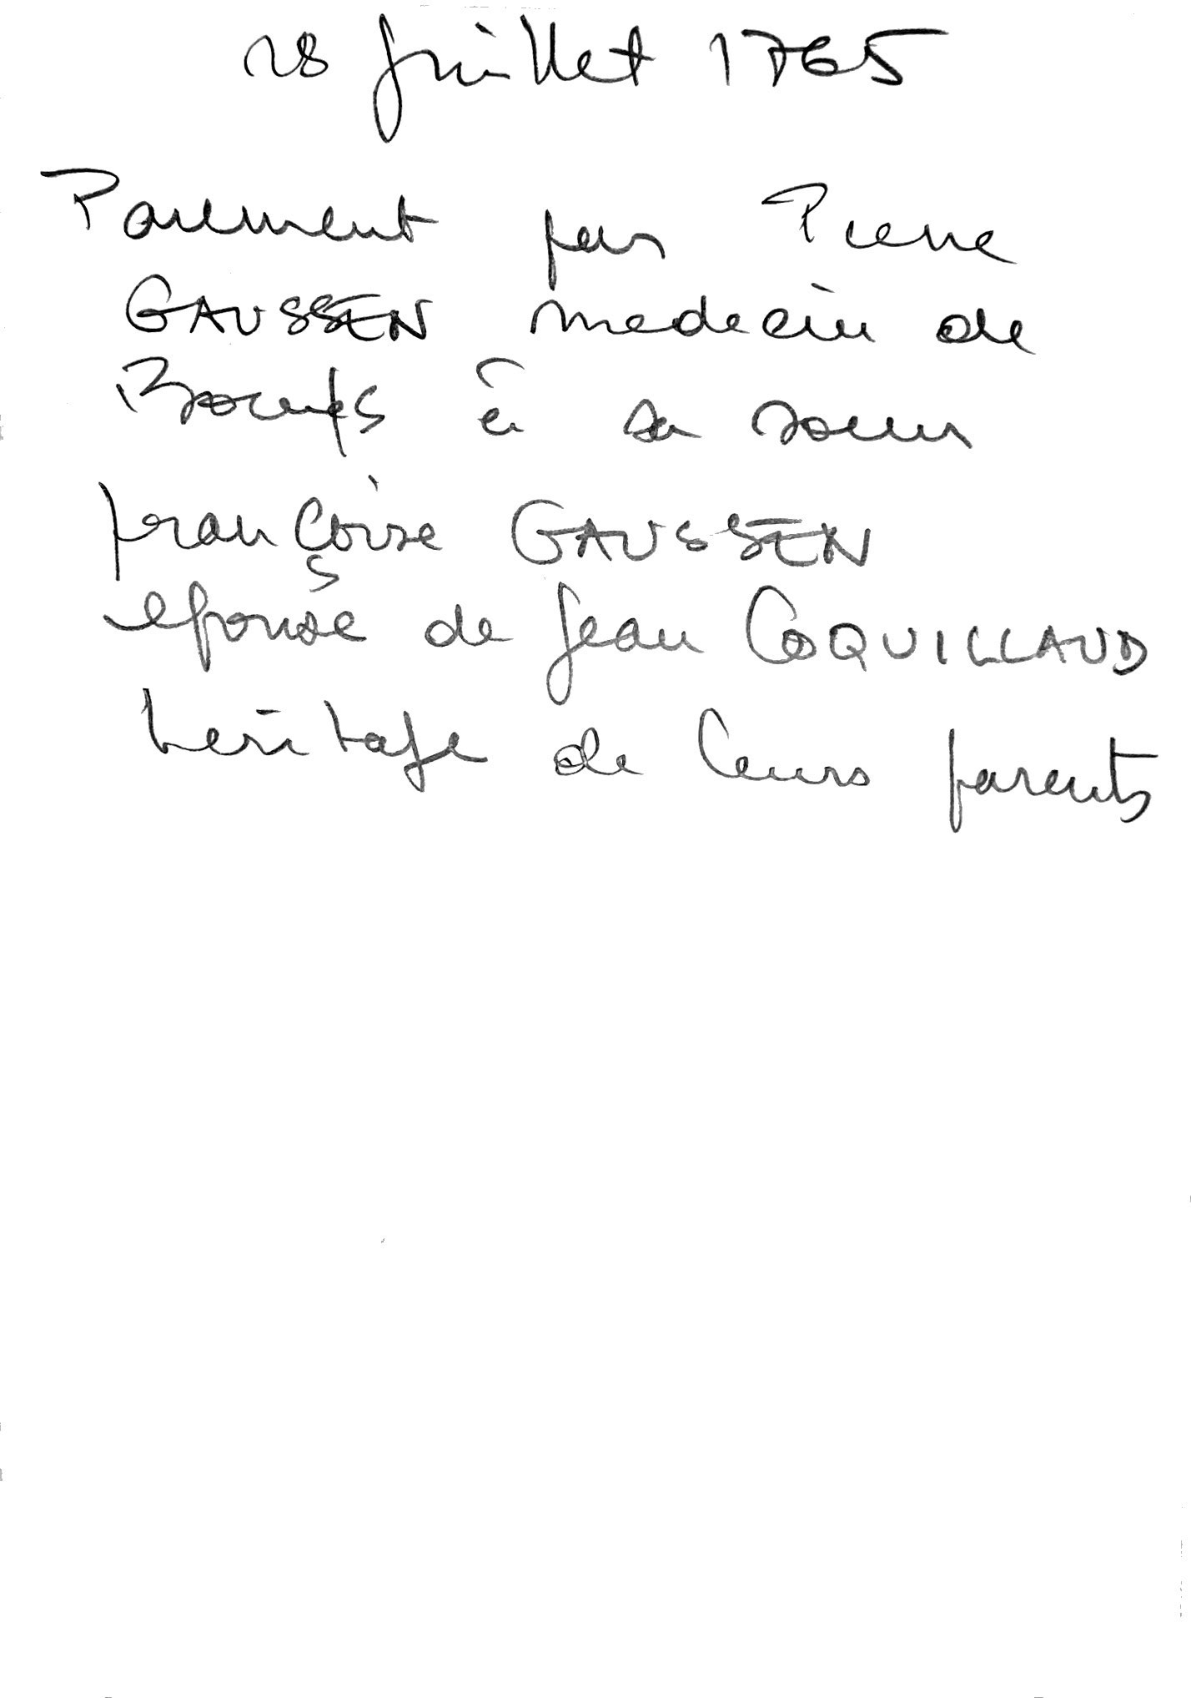 28 juillet 1765
Paiement par Pierre
GAUSSEN medecin de
à sa soeur
françoise GAUSSEN
epouse de Jean COQUILLAUD
héritage de leurs parents